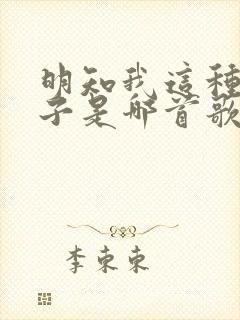 明知我這種
子是哪首歌
李東東